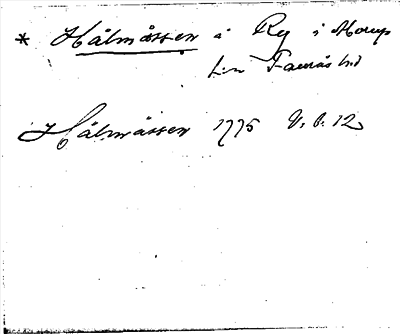 * Hålmåssen i Ry i Morup
sn Faurås hd
Hålmåssen 1775 V. b. 12